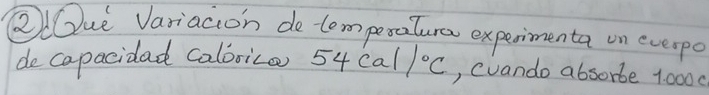 ② ¿Qué Variación de temperatura experimenta un cuerpo
de capacidad calórica 54 cal/°C, cuando absorbe 1.000 c